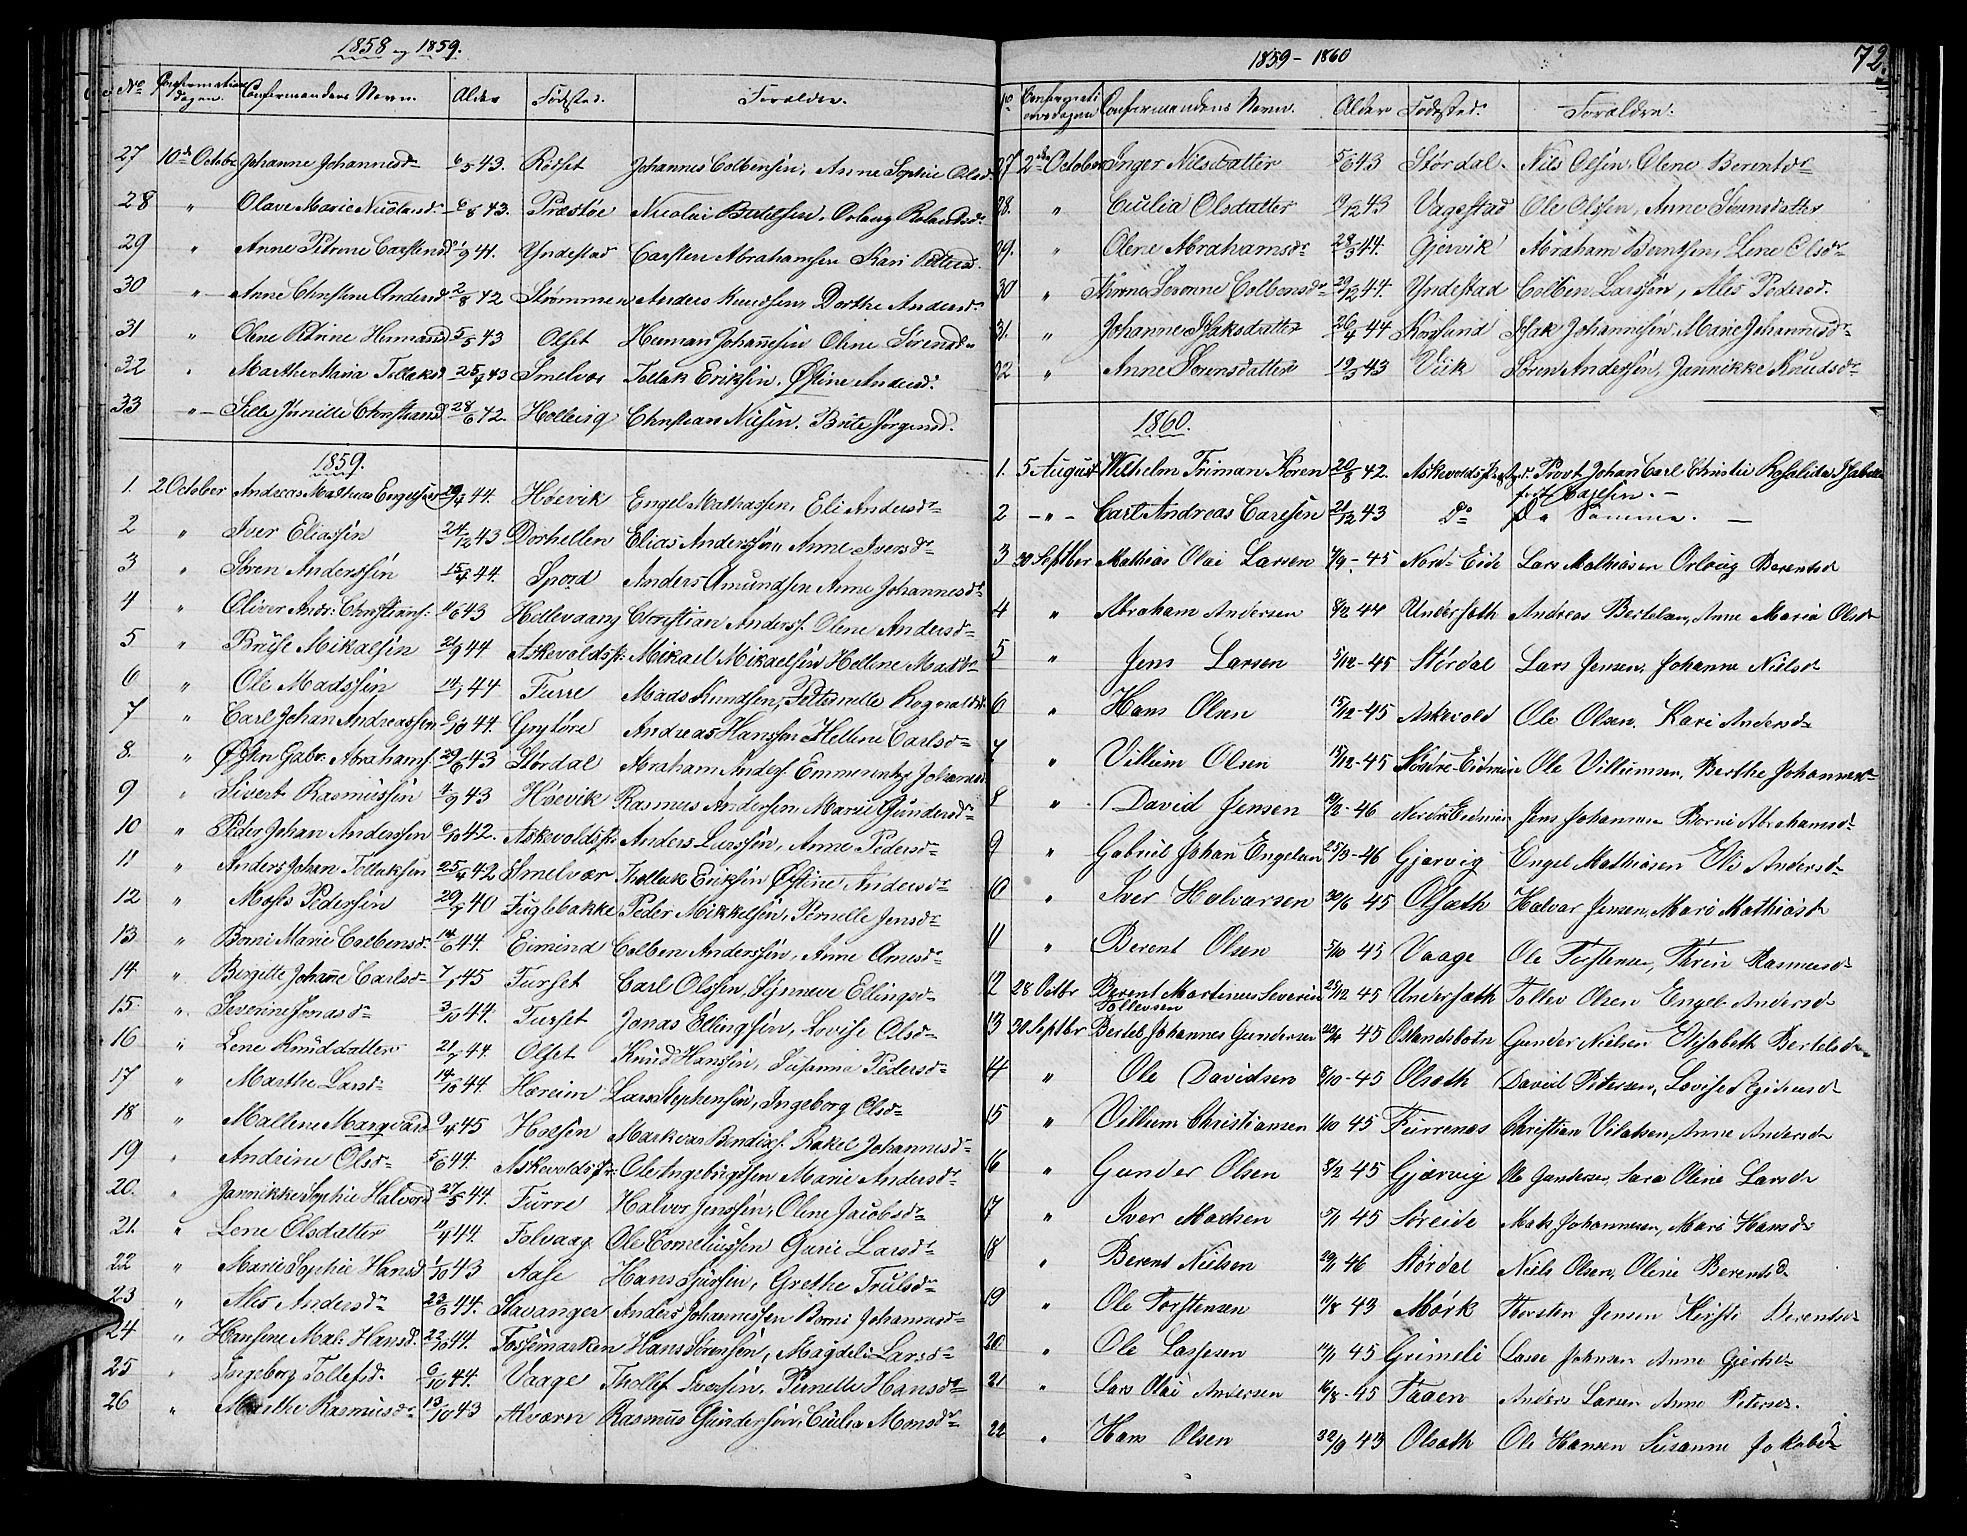 1858 og 1859.
No Confirmations dagen. Confirmandens Navn. Alder Fødested. Forældre.
27 10de Octobr Johanne Johannesdr 6/5 43. Røsset Johannes Colbensen, Anne Sophie Olsd.
28 " Olave Marie Nicolausd. 6/8 43. Præstøe Nicolai
29 " Anne Petrine Carstensd 1/9 41. Yndestad Carsten Abrahamsen Kari
30 " Anne Christine Andersd 2/8 42 Strømmen Anders Knudsen, Dorthe Andersd.
31 " Olene Petrine Hermansd 5/5 43 Olset Herman Johannesen Olene Sørensdr
32 " Marthe Maria Tollaksd 25/4 43 Smelvær Tollak Eriksen, Østine Andersd.
33 " Sille Christiansd 28/6 42. Christian Nilsen. Brite Jørgensd.
1859.
1. 2 October Andreas Mathias Engelsen 44. Høevik Engel Mathiassen, Eli Andersdr
2 " Iver Eliassen 24/12 43 Dorhellen Elias Anderssen Anne Iversdr
3 " Søren Anderssen 15/4 44. Spord Anders Amundsen Anne Johannesdr
4 " Oliver Andr: Christians: 11/6 43 Hollevaang Christian Anderss. Olene Andersdr
5 " Mikaelsen 21/9 44 Askevoldspr. Mikael Mikaelsen Hellene Madsdr
6 " Ole Madssen 14/1 44 Furre Mads Knudsen, Petternille
7 " Carl Johan Andreassen 6/10 44. Grytøre Andreas Hanssen Hellene Carlsdr
8. " Østen Gabr. Abrahams. 29/6 43 Stordal Abraham Anders. Johannesd
9 " Sivert Rasmussen 4/9 43 Høevik Rasmus Anderssen Marie Gundersdr
10 " Peder Johan Anderssen 6/10 42. Askevoldspr Anders Larssen, Anne Pedersdr
11 " Anders Johan Tollaksen 25/4 42 Smelvær Thollak Eriksen Østine Andersdr
12 " Moses Pederssen 20/7 40 Fuglebakke Peder Mikkelsen, Pernelle Jensdr
13 " Borni Marie Colbensdr 14/6 44. Eimind Colben Anderssen, Anne Amesdr
14 " Birgitte Johane Carlsdr 7/1 45 Furset Carl Olssen, Synneve Ellingsdr
15 " Severine Jonasdr 3/10 44. Furset Jonas Ellingsen, Lovise Olsdr
16 " Lene Knuddatter 21/7 44. Olset Knud Hanssen, Susanna Pedersdr
17 " Marthe Larsdr 14/10 44. Hæreim Lars Stephensen, Ingeborg Olsdr
18 " Mallene Marqvard 9/4 45 Hoesen Markvar Bendixs. Rakel Johannesdr
19 " Andrine Olsdr 5/6 44. Askevoldspr. Ole Ingebrigtsen Marie Andersdr
20. " Jannikke Sophie Halvord 27/5 44. Furre Halvor Jenssen, Olene Jacobsdr
21. " Lene Olsdatter 11/4 44. Folvaag Ole Corneliussen Gurie Larsdr
22 " Marie Sophie Hansd 1/10 43 Aase Hans Grethe Trulsdr
23 " Ales Andersdr 23/6 44. Stavanger Anders Johannessen Borni Johannesdr
24 " Hansine Mal: Hansd. 22/10 44. Fossemarken Hans Sørensen, Magdeli Larsdr
25 " Ingeborg Tollefsd. 6/10 44. Vaage Thollef Pernelle Hansdr
26 " Marthe Rasmusdr 13/10 43 Alværn Rasmus Gundersen, Cicilia Monsdr
1859 - 1860
72.
No Confirmationsdagen Confirmandens Navn. Alder Fødested. Forældre.
27 2den October Inger Nilsdatter 5/6 43 Størdal. Nils Olsen, Olene Berentsdr
28. " Cicilia Olsdatter 9/12 43 Vagestad Ole Olssen, Anne Sørensdatter
29. " Olene Abrahamsdr 28/3 44. Gjervik Abraham Berntsen, Lene Olsdr
30 " Severine Colbensdr 29/2 44. Yndestad Colben Larssen, Ales Pedersd.
31. " Johanne Isaksdatter 26/4 44 Korssund Isak Johannesen, Marie Johannesdr
32 " Anne Sørensdatter 19/3 43 Viik Søren Anderssen, Jannikke Knudsdr
1860.
1. 5 August Wilhelm Friman Koren 20/8 42. Askevoldspr. Provst Johan Carl Christie Rosalida Isabella
født Carlsen. -
2 - " - Carl Andreas Carlsen 21/12 43 Do Do Samme. -
3 30 Septbr Mathias Olai Larsen 4/9 - 45 Nord-Eide Lars Mathiasen Orloug Berentsd
4 " Abraham Andersen 8/2 44 Undersæth Andreas Bertelsen, Anne Maria Olsdr
5 " Jens Larsen 5/12 - 45 Størdal Lars Jensen, Johanne Nielsd
6 " Hans Olsen 15/12 - 45 Askevold Ole Olsen. Kari Andersdr
7 " Villum Olsen 15/12 - 45 Nordre-Eidmin Ole Villumsen, Berthe Johannesdr
8 " David Jensen 9/2 - 46 Nordre Eidmin Jens Johansen Borni Abrahamsdr
9 " Gabriel Johan Engelsen 25/3 - 46 Gjørvig Engel Mathiasen Eli Andersdr
10 " Iver Halvarsen 30/6 45 Olsæth Halvar Jensen, Mari Mathiasdr
11 " Berent Olsen 5/10 45 Vaage Ole Torstensen, Thrin Rasmusdr
12 28 Octbr Berent Martinus Severin Tollevsen 25/12 45 Undersæth Tollev Olsen Engel Andersd
13 30 Septbr Bertel Johannes Gundersen 22/4 45 Ostendsbotn Gunder Nielsen Elisabeth Bertelsdr
14 " Ole Davidsen 8/10 - 45 Olsæth David Petersen, Lovise
15 " Villum Christiansen 1/10 45 Furrenas Christian Vilaksen, Anne Andersdr
16 " Gunder Olsen 8/2 45 Gjærvig Ole Gundersen, Sara Oline Larsdr
17 " Iver Madsen 5/1 45 Søreide Mads Johannesen, Mari Hansdr
18 " Berent Nielsen 29/1 46 Størdal Niels Olsen, Oline Berentsd
19 " Ole Torstensen 11/8 43 Mørk Thorsten Jensen Kirsti Berentsdr
20 " Ole Lassesen 14/1 45 Grimeli Lasse Johnsen Anne
21 " Lars Olai Andersen 16/8 - 45 Taaen Anders Larsen Anne Petersdr.
22 " Hans Olsen 22/9 43 Olsæth Ole Hansen Susanne Jakobsdr